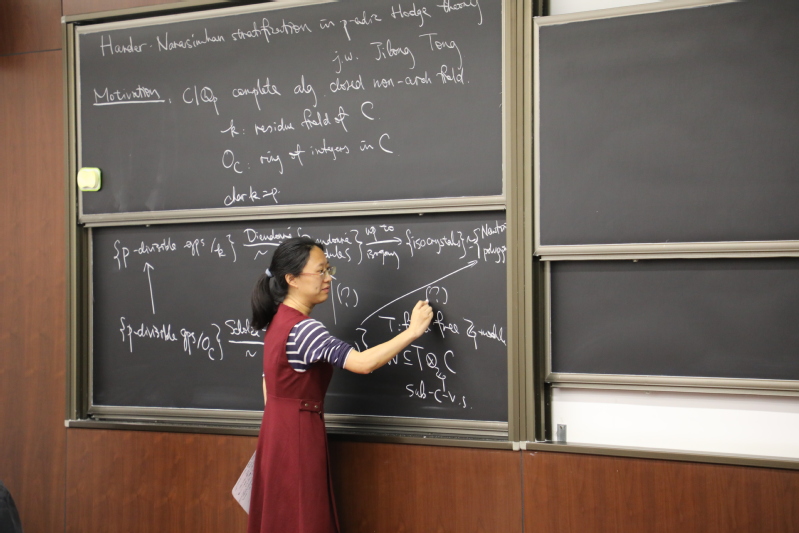 Harder-Narasimhan stratification in p-adic Hodge theory
j.w. Jilong Tong
Motivation. C/Qp complete alg closed non-arch field.
k: residue field of C.
O_C: ring of integers in C
char k=p.
{p-divisible gps/k} Dieudonné ~ up to isogeny {isocrystals} {Newton polygons
(?) (?)
{p-divisible gps/O_C} ~ T: free Zp-module
W ⊆ T⊗C
sub-C-v.s.